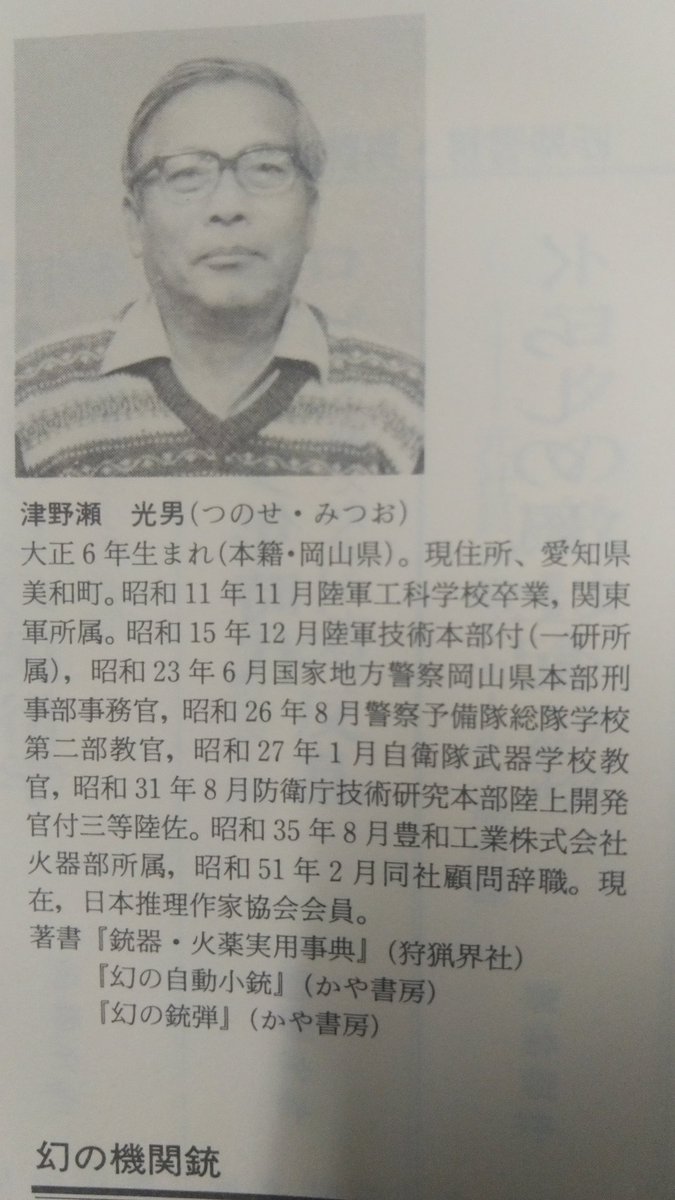 津野瀬 光男(つのせ・みつお)
大正6年生まれ(本籍・岡山県)。現住所、愛知県
美和町。昭和11年11月陸軍工科学校卒業,関東
軍所属。昭和15年12月陸軍技術本部付(一研所
属),昭和23年6月国家地方警察岡山県本部刑
事部事務官,昭和26年8月警察予備隊総隊学校
第二部教官,昭和27年1月自衛隊武器学校教
官,昭和31年8月防衛庁技術研究本部陸上開発
官付三等陸佐。昭和35年8月豊和工業株式会社
火器部所属,昭和51年2月同社顧問辞職。現
在,日本推理作家協会会員。
著書『銃器・火薬実用事典』(狩猟界社)
『幻の自動小銃』(かや書房)
『幻の銃弾』(かや書房)
幻の機関銃